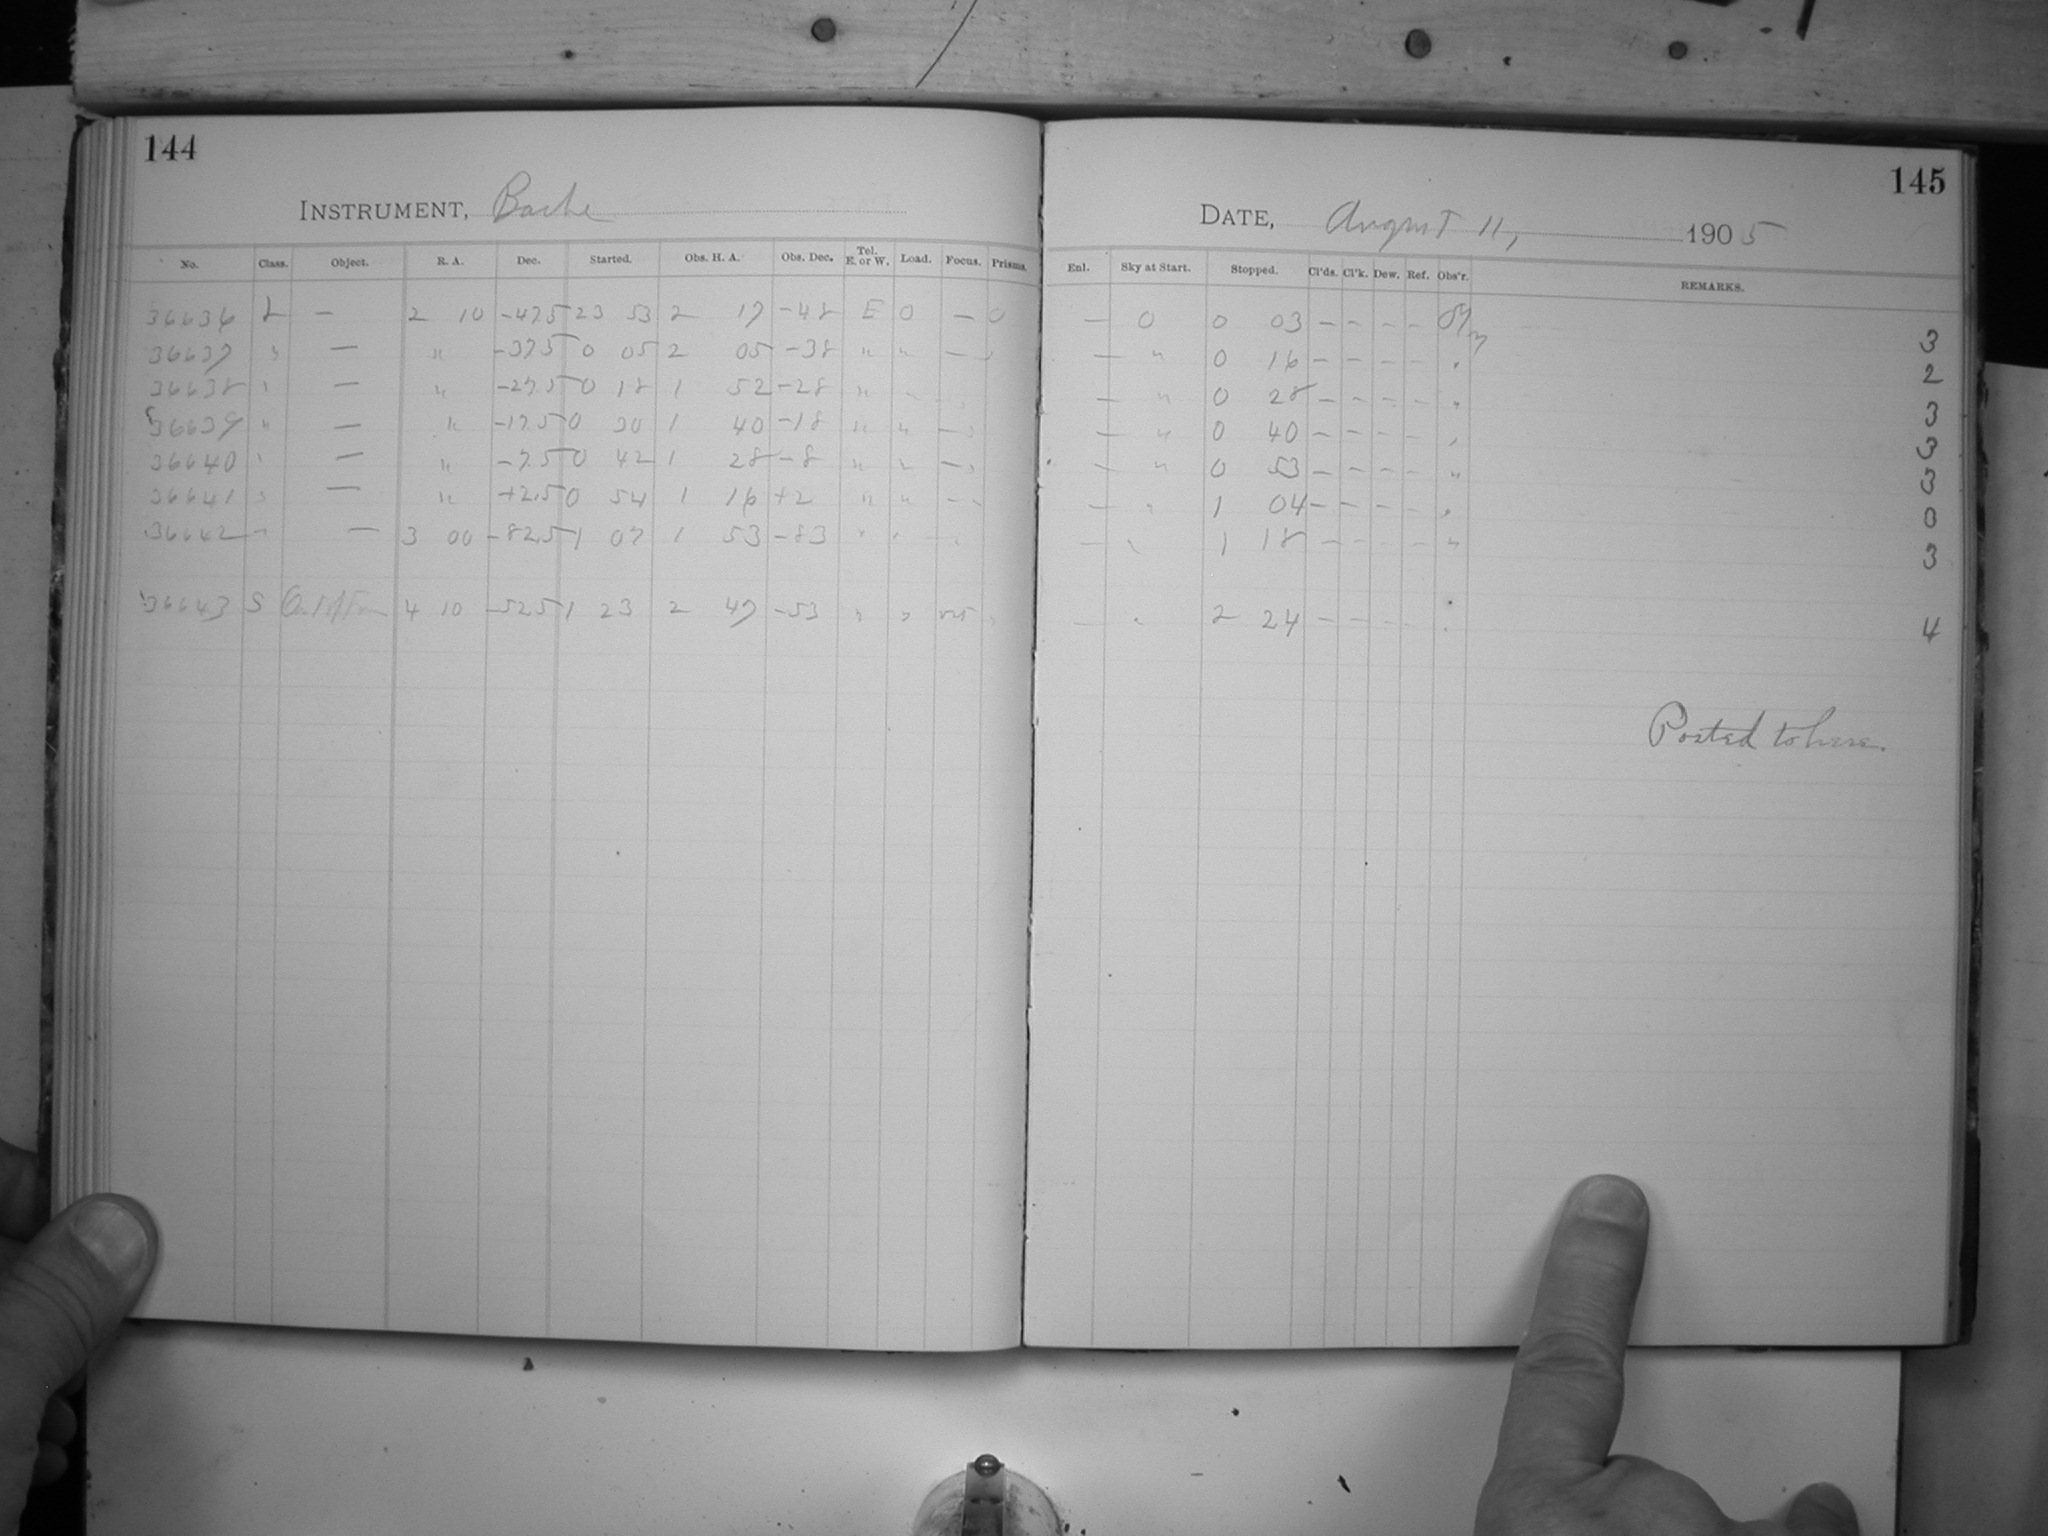 144
INSTRUMENT, Bache
No. Class. Object. R. A. Dec. Started. Obs. H. A. Obs. Dec. Tel. E. or W. Load. Focus. Prisms.
36636 L — 2 10 -47.5 23 53 2 17 -48 E 0 — 0
36637 " — " -37.5 0 05 2 05 -38 " " — "
36638 " — " -27.5 0 18 1 52 -28 "
36639 " — " -17.5 0 30 1 40 -18 " " — "
36640 " — " -7.5 0 42 1 28 -8 " " — "
36641 " — " +2.5 0 54 1 16 +2 " " — "
36642 " — 3 00 -82.5 1 07 1 53 -83 " "
36643 S 4 10 -52.5 1 23 2 47 -53 " "
145
DATE, August 11, 1905
Enl. Sky at Start. Stopped. Cl'ds. Cl'k. Dew. Ref. Obs'r. REMARKS.
— 0 0 03 — — — — 3
— " 0 16 — — — — " 2
— " 0 28 — — — — " 3
— " 0 40 — — — — " 3
— " 0 53 — — — — " 3
— " 1 04 — — — — " 0
— " 1 18 — — — — " 3
— " 2 24 — — — — " 4
Posted to here.